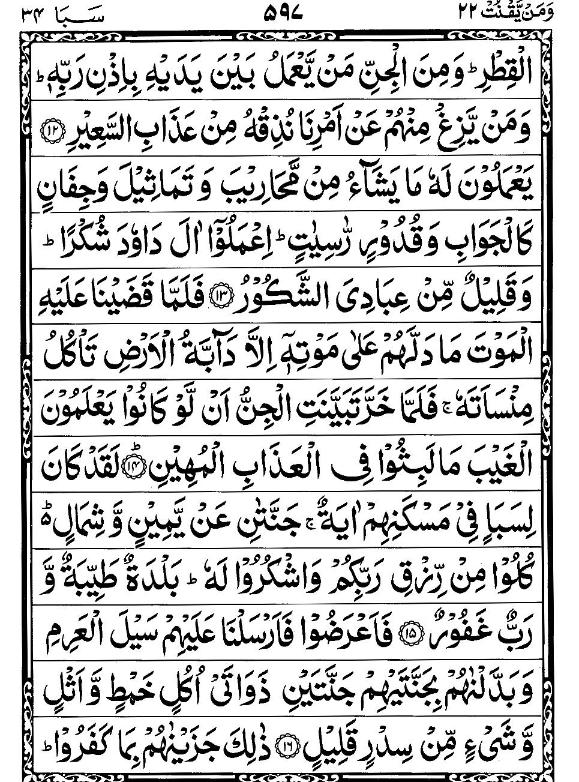 وَمَنْ يَّقْنُتْ ٢٢ ٥٩٧ سَبَا ٣٤
الْقِطْرِ ؕ وَمِنَ الْجِنِّ مَنْ يَّعْمَلُ بَيْنَ يَدَيْهِ بِاِذْنِ رَبِّهٖ ؕ
وَمَنْ يَّزِغْ مِنْهُمْ عَنْ اَمْرِنَا نُذِقْهُ مِنْ عَذَابِ السَّعِيْرِ ﴿١٢﴾
يَعْمَلُوْنَ لَهٗ مَا يَشَآءُ مِنْ مَّحَارِيْبَ وَ تَمَاثِيْلَ وَجِفَانٍ
كَالْجَوَابِ وَقُدُوْرٍ رّٰسِيٰتٍ ؕ اِعْمَلُوْۤا اٰلَ دَاوٗدَ شُكْرًا ؕ
وَقَلِيْلٌ مِّنْ عِبَادِيَ الشَّكُوْرُ ﴿١٣﴾ فَلَمَّا قَضَيْنَا عَلَيْهِ
الْمَوْتَ مَا دَلَّهُمْ عَلٰى مَوْتِهٖۤ اِلَّا دَآبَّةُ الْاَرْضِ تَاْكُلُ
مِنْسَاَتَهٗ ۚ فَلَمَّا خَرَّ تَبَيَّنَتِ الْجِنُّ اَنْ لَّوْ كَانُوْا يَعْلَمُوْنَ
الْغَيْبَ مَا لَبِثُوْا فِي الْعَذَابِ الْمُهِيْنِ ﴿١٤﴾ؕ لَقَدْ كَانَ
لِسَبَاٍ فِيْ مَسْكَنِهِمْ اٰيَةٌ ۚ جَنَّتٰنِ عَنْ يَّمِيْنٍ وَّ شِمَالٍ ؕ۬
كُلُوْا مِنْ رِّزْقِ رَبِّكُمْ وَاشْكُرُوْا لَهٗ ؕ بَلْدَةٌ طَيِّبَةٌ وَّ
رَبٌّ غَفُوْرٌ ﴿١٥﴾ فَاَعْرَضُوْا فَاَرْسَلْنَا عَلَيْهِمْ سَيْلَ الْعَرِمِ
وَبَدَّلْنٰهُمْ بِجَنَّتَيْهِمْ جَنَّتَيْنِ ذَوَاتَيْ اُكُلٍ خَمْطٍ وَّاَثْلٍ
وَّشَيْءٍ مِّنْ سِدْرٍ قَلِيْلٍ ﴿١٦﴾ ذٰلِكَ جَزَيْنٰهُمْ بِمَا كَفَرُوْا ؕ